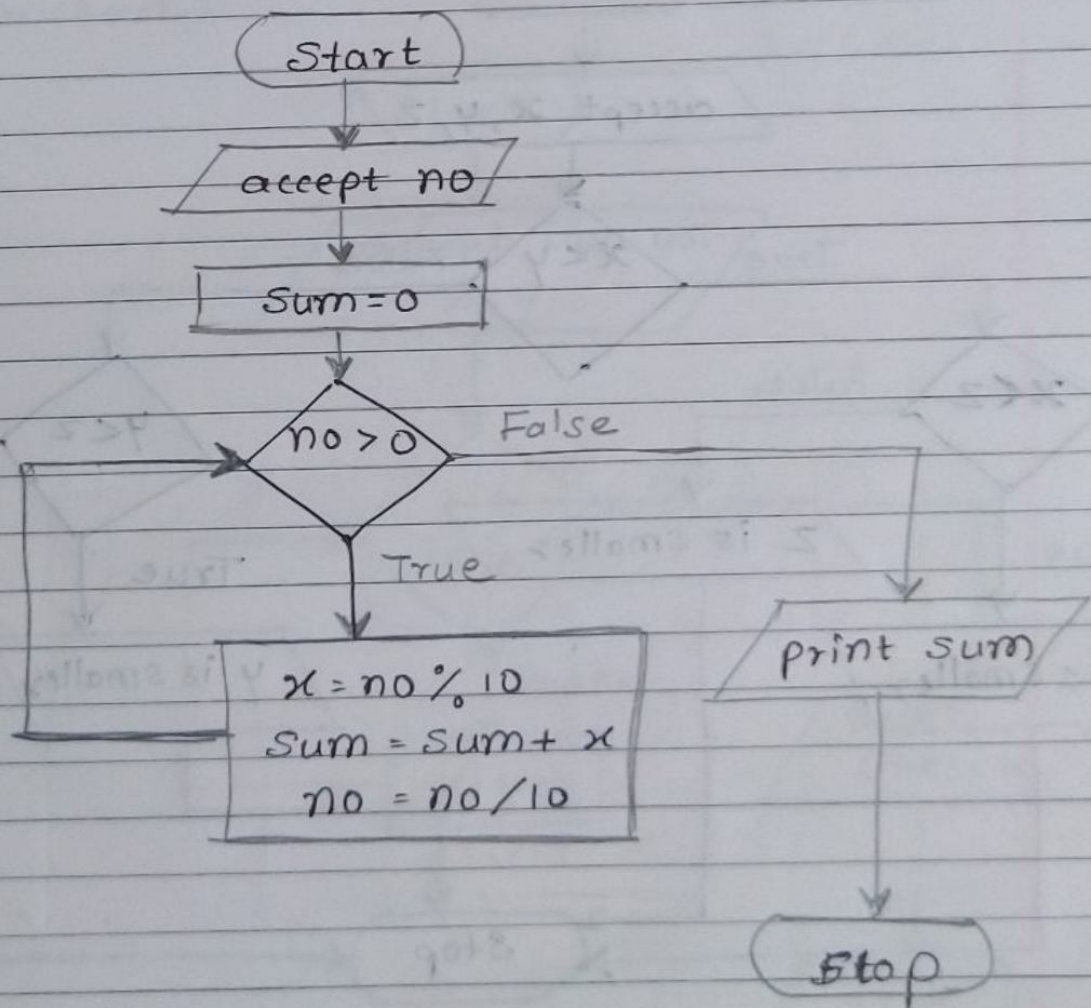 Start
accept no
sum=0
no > 0
False
True
x = no % 10
sum = sum + x
no = no / 10
print sum
Stop